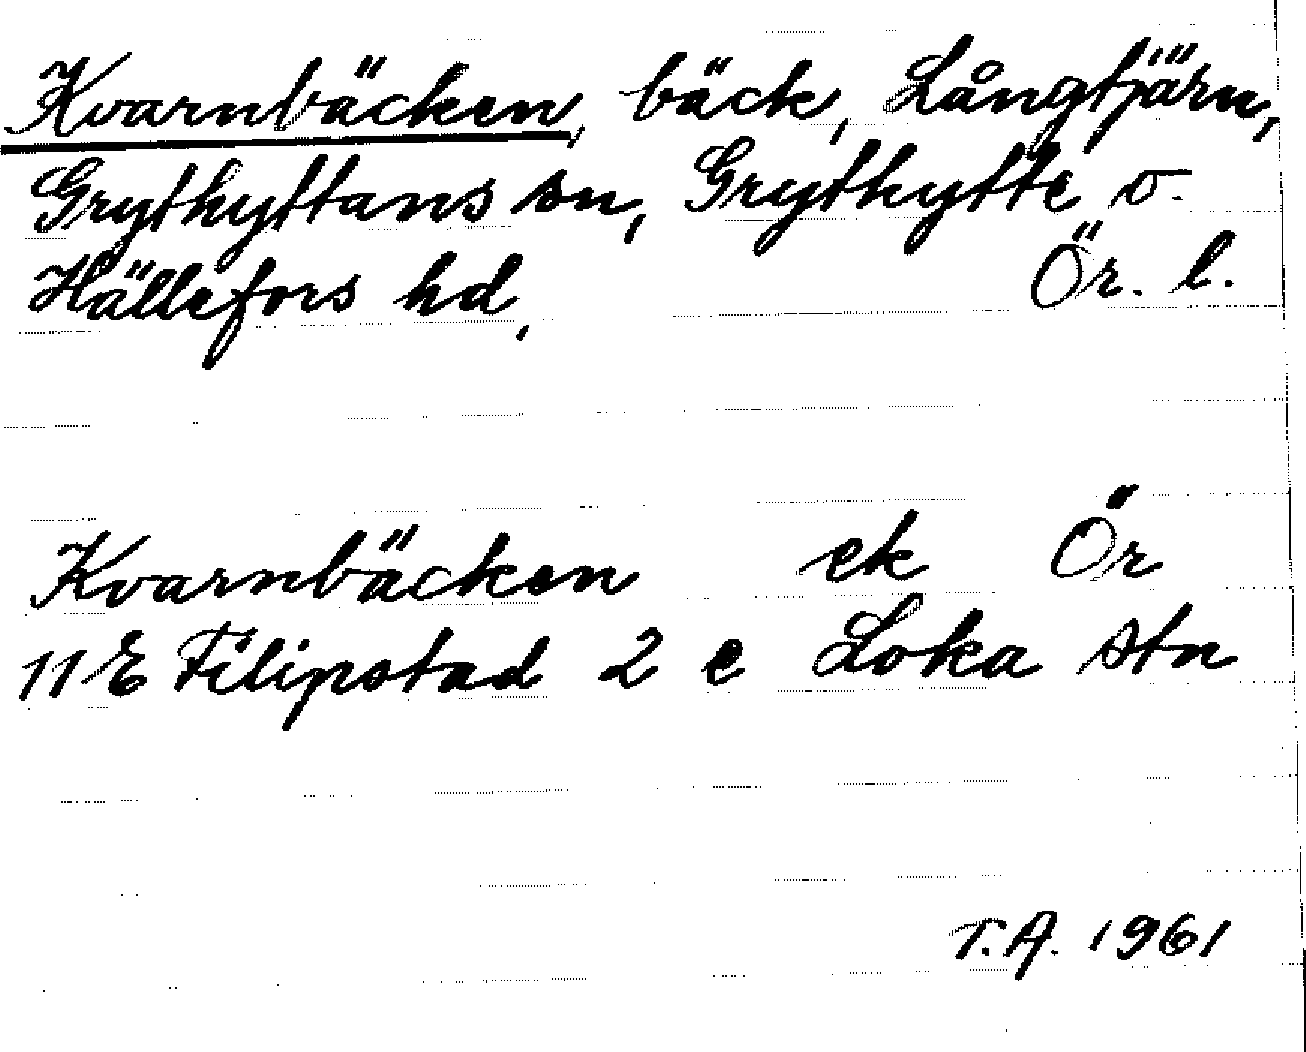 Kvarnbäcken, bäck, Långtjärn,
Grythyttans sn, Grythytte o.
Hällefors hd, Ör. l.
Kvarnbäcken ek Ör
11 E Filipstad 2 e Loka stn
T.A. 1961